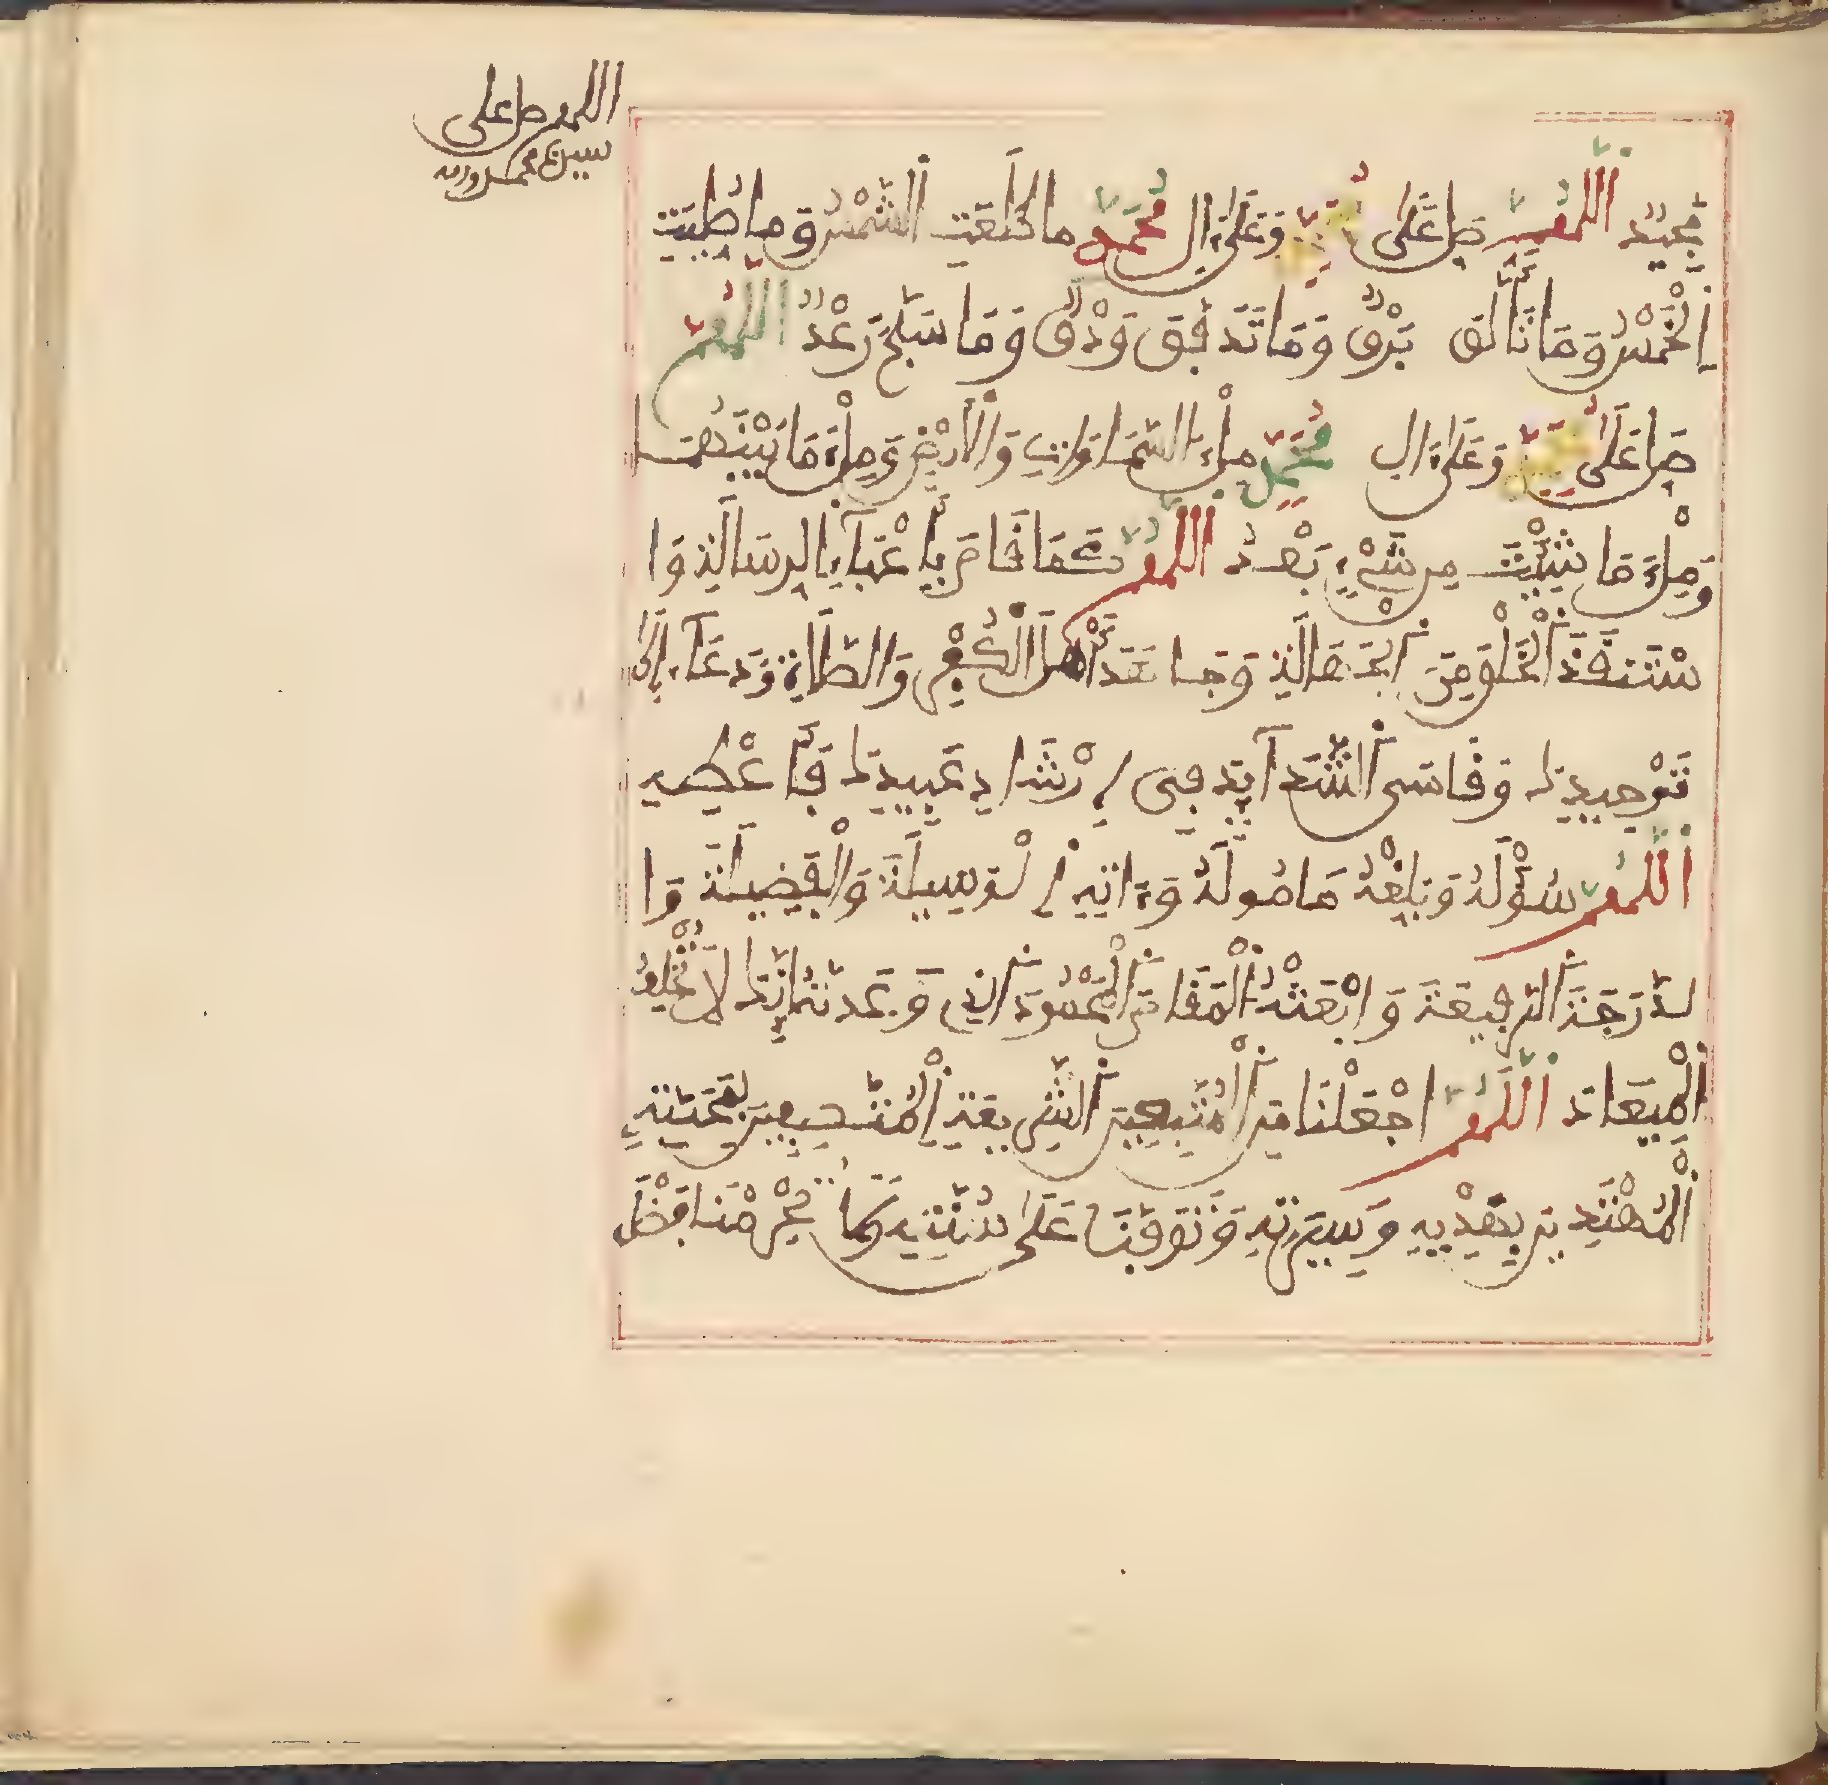 اللهم صل على
سيدنا محمد وءاله
مَجِيدٌ اللَّهُمَّ صَلِّ عَلَى مُحَمَّدٍ وَعَلَى ءَالِ مُحَمَّدٍ مَا طَلَعَتِ الشَّمْسُ وَمَا صُلِّيَتِ
الْخَمْسُ وَمَا تَأَلَّقَ بَرْقٌ وَمَا تَدَفَّقَ وَدْقٌ وَمَا سَبَّحَ رَعْدٌ اللَّهُمَّ
صَلِّ عَلَى مُحَمَّدٍ وَعَلَى ءَالِ مُحَمَّدٍ مِلْءَ السَّمَاوَاتِ وَالْأَرْضِ وَمِلْءَ مَا بَيْنَهُمَا
وَمِلْءَ مَا شِئْتَ مِن شَيْءٍ بَعْدُ اللَّهُمَّ كَمَا قَامَ بِأَعْبَاءِ الرِّسَالَةِ وَا
سْتَنْقَذَ الْخَلْقَ مِنَ الْجَهَالَةِ وَجَاهَدَ أَهْلَ الْكُفْرِ وَالضَّلَالَةِ وَدَعَا إِلَى
تَوْحِيدِكَ وَقَاسَى الشَّدَائِدَ فِي إِرْشَادِ عَبِيدِكَ فَأَعْطِهِ
اللَّهُمَّ سُؤْلَهُ وَبَلِّغْهُ مَامُولَهُ وَءَاتِهِ الْوَسِيلَةَ وَالْفَضِيلَةَ وَا
لدَّرَجَةَ الرَّفِيعَةَ وَابْعَثْهُ الْمَقَامَ الْمَحْمُودَ الَّذِي وَعَدتَّهُ إِنَّكَ لَا تُخْلِفُ
الْمِيعَادَ اللَّهُمَّ اجْعَلْنَا مِنَ الْمُتَّبِعِينَ لِشَرِيعَتِهِ الْمُتَّصِفِينَ بِمَحَبَّتِهِ
الْمُهْتَدِينَ بِهَدْيِهِ وَسِيرَتِهِ وَتَوَفَّنَا عَلَى سُنَّتِهِ وَلَا تَحْرِمْنَا فَضْلَ